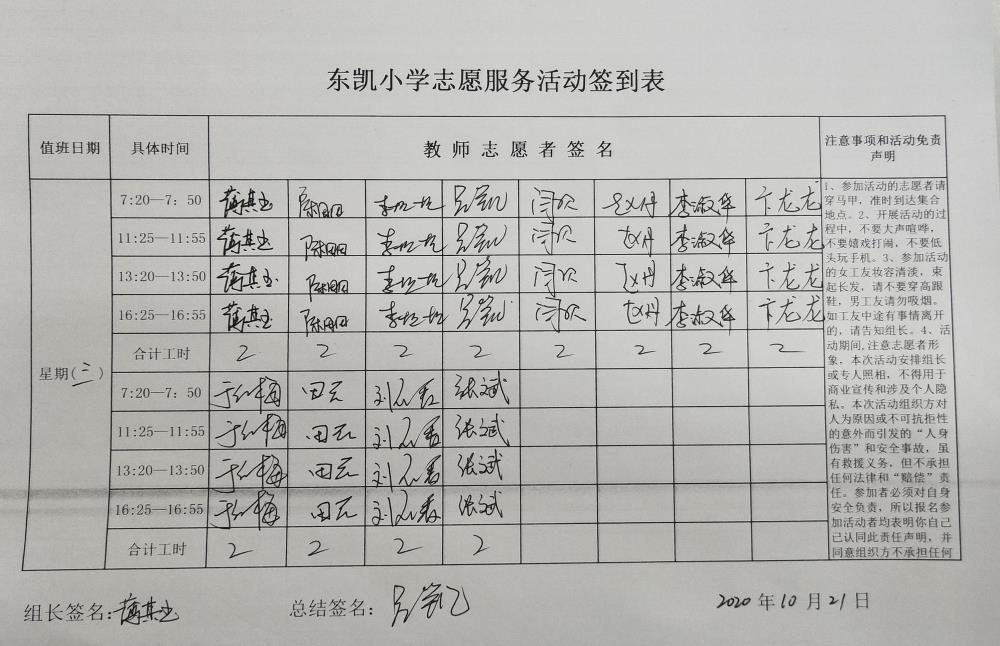 东凯小学志愿服务活动签到表
值班日期 具体时间 教师志愿者签名 注意事项和活动免责声明
星期(三)
7:20—7:50 李淑华 卞龙龙
11:25—11:55 李淑华 卞龙龙
13:20—13:50 李淑华 卞龙龙
16:25—16:55 李淑华 卞龙龙
合计工时 2 2 2 2 2 2 2 2
7:20—7:50 张斌
11:25—11:55 张斌
13:20—13:50 张斌
16:25—16:55 张斌
合计工时 2 2 2 2
1、参加活动的志愿者请
穿马甲，准时到达集合
地点。2、开展活动的过
程中，不要大声喧哗，
不要嬉戏打闹，不要低
头玩手机。3、参加活动
的女工友妆容清淡，束
起长发，请不要穿高跟
鞋，男工友请勿吸烟。
如工友中途有事情离开
的，请告知组长。4、活
动期间,注意志愿者形
象，本次活动安排组长
或专人照相，不得用于
商业宣传和涉及个人隐
私。本次活动组织方对
人为原因或不可抗拒性
的意外而引发的“人身
伤害”和安全事故，虽
有救援义务，但不承担
任何法律和“赔偿”责
任。参加者必须对自身
安全负责，所以报名参
加活动者均表明你自己
已认同此责任声明，并
同意组织方不承担任何
组长签名: 总结签名: 2020年10月21日